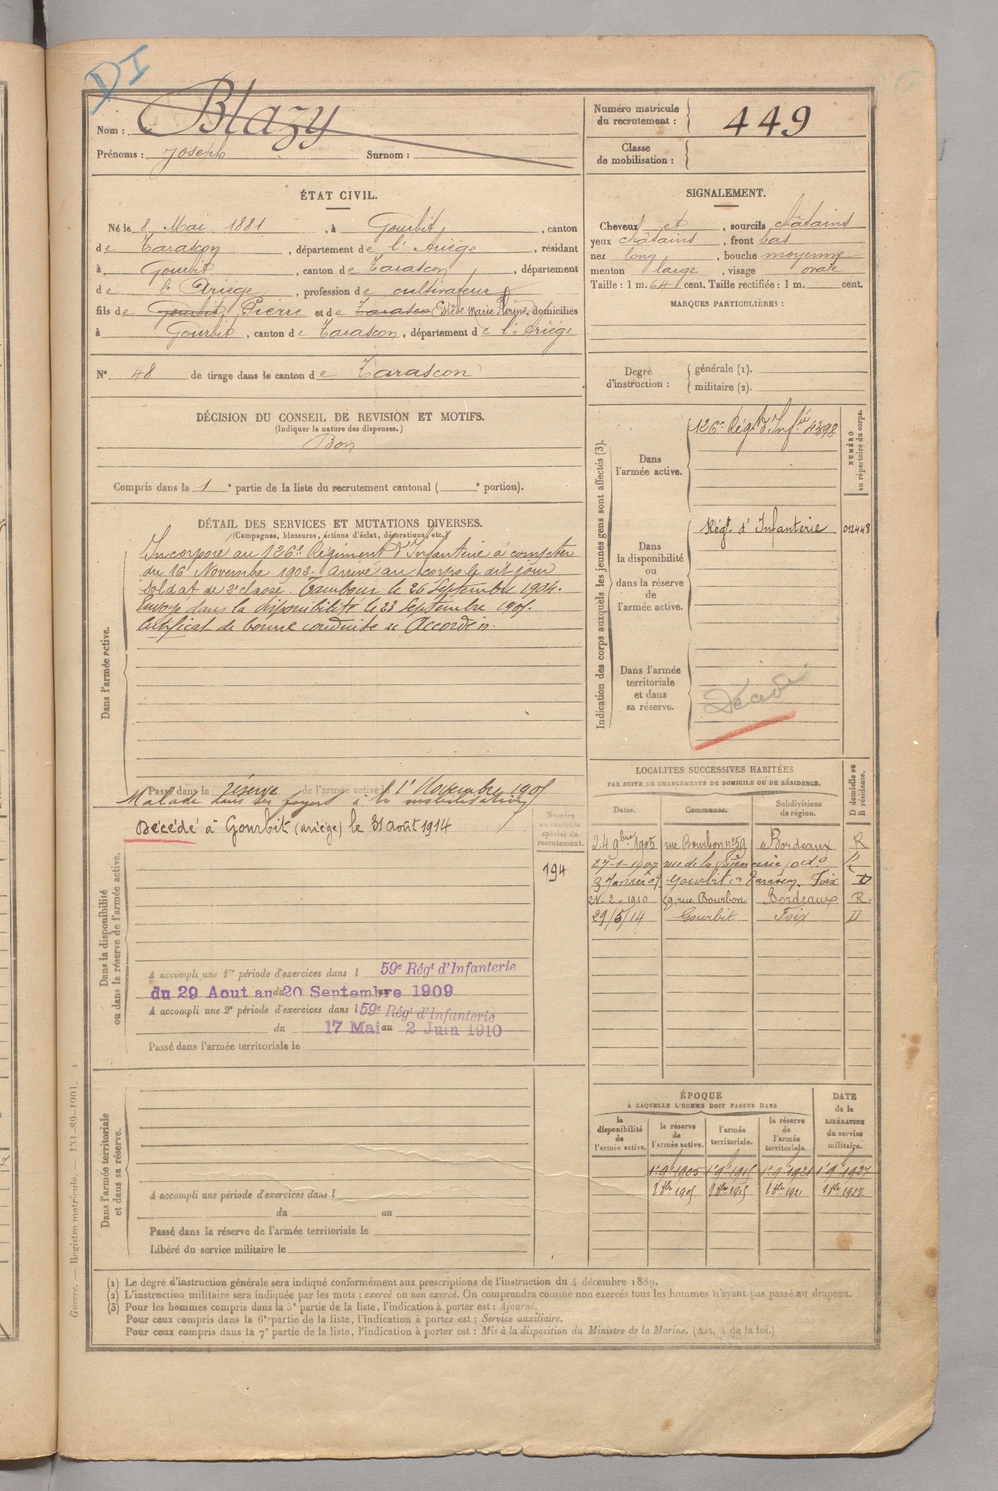 DI
Nom : Blazy
Prénoms : Joseph Surnom :
Numéro matricule du recrutement : 449
Classe de mobilisation :
ÉTAT CIVIL.
Né le 8 Mai 1881, à Gourbit, canton
de Tarascon, département de l'Ariège, résidant
à Gourbit, canton de Tarascon, département
de l'Ariège, profession de cultivateur
fils de Gourbit, Pierre et de Tarascon Marie, domiciliés
à Gourbit, canton de Tarascon, département de l'Ariège
N° 48 de tirage dans le canton de Tarascon
SIGNALEMENT.
Cheveux et, sourcils châtains
yeux châtains, front bas
nez long, bouche moyenne
menton large, visage ovale
Taille : 1 m. 64 cent. Taille rectifiée : 1 m. cent.
MARQUES PARTICULIÈRES :
Degré d'instruction : générale (1).
militaire (2).
DÉCISION DU CONSEIL DE REVISION ET MOTIFS.
(Indiquer la nature des dispenses.)
Bon
Compris dans la 1e partie de la liste du recrutement cantonal ( e portion).
DÉTAIL DES SERVICES ET MUTATIONS DIVERSES.
(Campagnes, blessures, actions d'éclat, décorations, etc.)
Dans l'armée active.
Incorporé au 126e Régiment d'Infanterie à compter
du 16 Novembre 1902. Arrivé au corps le dit jour
soldat de 2e classe. Tambour le 26 Septembre 1904.
Envoyé dans la disponibilité le 23 Septembre 1905.
Certificat de bonne conduite Accordé
Passé dans la réserve de l'armée active le 1er Novembre 1905
Malade dans ses foyers à la mobilisation
Décédé à Gourbit (ariège) le 31 août 1914
Dans la disponibilité ou dans la réserve de l'armée active.
Numéro au contrôle spécial du recrutement.
194
A accompli une 1re période d'exercices dans l 59e Régt d'Infanterie
du 29 Aout au 20 Septembre 1909
A accompli une 2e période d'exercices dans l 59e Régt d'Infanterie
du 17 Mai au 2 Juin 1910
Passé dans l'armée territoriale le
Dans l'armée territoriale et dans sa réserve.
A accompli une période d'exercices dans l
du au
Passé dans la réserve de l'armée territoriale le
Libéré du service militaire le
Indication des corps auxquels les jeunes gens sont affectés (3).
NUMÉRO au répertoire du corps.
Dans l'armée active. 126e Régt d'Infie 4398
Dans la disponibilité ou dans la réserve de l'armée active. Régt. d'Infanterie 012448
Dans l'armée territoriale et dans sa réserve. Décédé
LOCALITÉS SUCCESSIVES HABITÉES
PAR SUITE DE CHANGEMENTS DE DOMICILE OU DE RÉSIDENCE.
D domicile ou R résidence.
Dates. Communes. Subdivisions de région.
24 9bre 1905 rue Bourbon n° 59 Bordeaux R
27-1-1907 rue de la
3 Janvier Gourbit Tarascon Foix D
2-1910 rue Bourbon Bordeaux R.
29/5/14 Gourbit Foix
ÉPOQUE
À LAQUELLE L'HOMME DOIT PASSER DANS
DATE de la LIBÉRATION du service militaire.
la disponibilité de l'armée active. la réserve de l'armée active. l'armée territoriale. la réserve de l'armée territoriale.
1 9 1905 1 9 1915 1 9 1921 1 9 1927
1 8bre 1905 1 8bre 1915 1 8bre 1921 1 8bre 1927
(1) Le degré d'instruction générale sera indiqué conformément aux prescriptions de l'instruction du 4 décembre 1889.
(2) L'instruction militaire sera indiquée par les mots : exercé ou non exercé. On comprendra comme non exercés tous les hommes n'ayant pas passé au drapeau.
(3) Pour les hommes compris dans la 5e partie de la liste, l'indication à porter est : Ajourné.
Pour ceux compris dans la 6e partie de la liste, l'indication à porter est : Service auxiliaire.
Pour ceux compris dans la 7e partie de la liste, l'indication à porter est : Mis à la disposition du Ministre de la Marine. (Art. 4 de la loi.)
Guerre. — Registre matricule. — 131-89-1901.